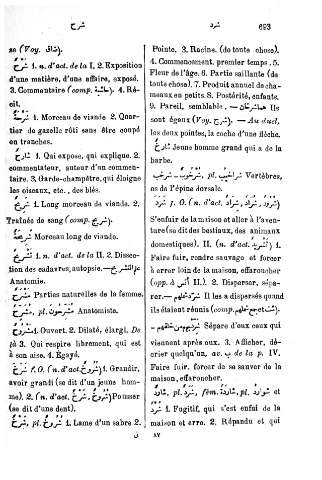 شرح
شرد
693
se (Voy. شاق).
شَرْحٌ 1. n. d'act. de la I. 2. Exposition
d'une matière, d'une affaire, exposé.
3. Commentaire (comp. حاشية). 4. Ré-
cit.
شَرْحَةٌ 1. Morceau de viande 2. Quar-
tier de gazelle rôti sans être coupé
en tranches.
شَارِحٌ 1. Qui expose, qui explique. 2.
commentateur, auteur d'un commen-
taire. 3. Garde-champêtre, qui éloigne
les oiseaux, etc., des blés.
شَرِيحٌ 1. Long morceau de viande. 2.
Traînée de sang (comp.
شَرِيحَةٌ Morceau long de viande.
تَشْرِيحٌ 1. n. d'act. de la II. 2. Dissec-
tion des cadavres, autopsie.—علم التشريح
Anatomie.
Parties naturelles de la femme.
Anatomiste.
1. Ouvert. 2. Dilaté, élargi. De
là 3. Qui respire librement, qui est
à son aise. 4. Égayé.
شَرَخَ f. O. (n. d'act. شُرُوخٌ) 1. Grandir,
avoir grandi (se dit d'un jeune hom-
me). 2. (n. d'act. شَرْخٌ, شُرُوخٌ) Pousser
(se dit d'une dent).
شَرْخٌ, pl. شُرُوخٌ 1. Lame d'un sabre 2.
Pointe. 3. Racine. (de toute chose).
4. Commencement, premier temps. 5.
Fleur de l'âge. 6. Partie saillante (de
toute chose). 7. Produit annuel de cha-
meaux en petits. 8. Postérité, enfants.
9. Pareil, semblable. — هما شرخان Ils
sont égaux (Voy. شرج).— Au duel,
les deux pointes, la coche d'une flèche.
شَارِخٌ Jeune homme grand qui a de la
barbe.
Vertèbres,
os de l'épine dorsale.
شَرَدَ f. O. (n. d'act. شَرَدٌ, شُرُودٌ, شِرَادٌ)
S'enfuir de la maison et aller à l'aven-
ture (se dit des bestiaux, des animaux
domestiques). II. (n. d'act. تَشْرِيدٌ) 1.
Faire fuir, rendre sauvage et forcer
à errer loin de la maison, effaroucher
(opp. à II.). 2. Disperser, sépa-
rer.— شرد شملهم Il les a dispersés quand
ils étaient réunis (comp. شتت شملهم).—
شرد بهم من خلفهم Sépare d'eux ceux qui
viennent après eux. 3. Afficher, dé-
crier quelqu'un, av. ب de la p. IV.
Faire fuir, forcer de se sauver de la
maison, effaroucher.
شَارِدٌ, pl. شَرَدٌ, fém. شَارِدَةٌ, pl. شَوَارِدُ et
شُرَّدٌ 1. Fugitif, qui s'est enfui de la
maison et erre. 2. Répandu et qui